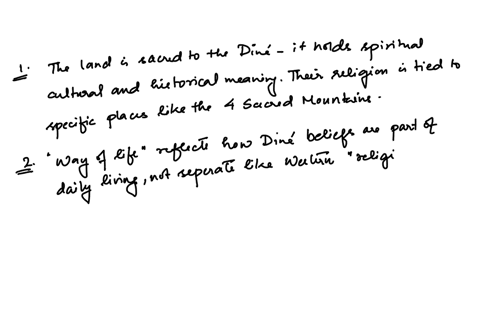 1. The land is sacred to the Diné – it holds spiritual
cultural and historical meaning. Their religion is tied to
specific places like the 4 Sacred Mountains.
2. "Way of life" reflects how Diné beliefs are part of
daily living, not seperate like Western "religi